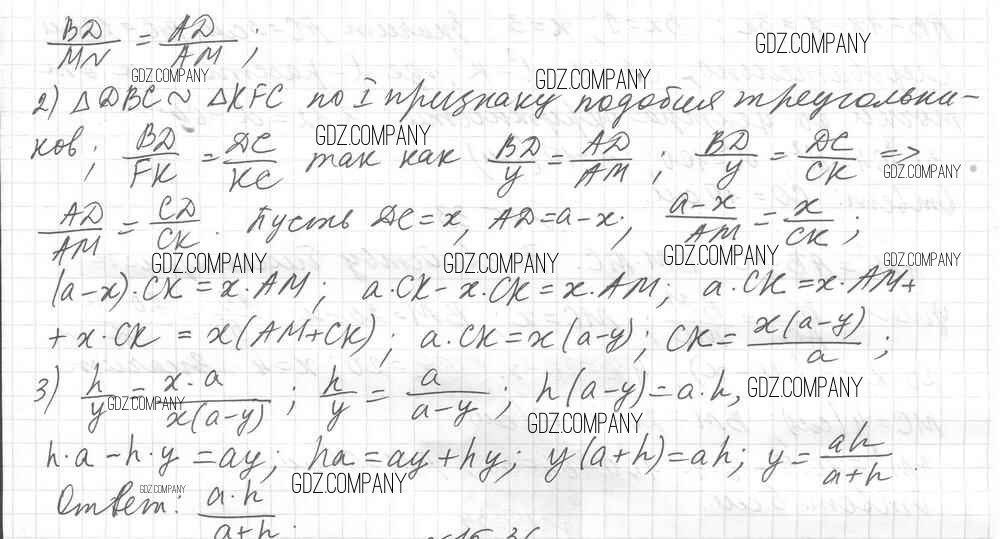 BD/MN = AD/AM ; GDZ.COMPANY
GDZ.COMPANY GDZ.COMPANY
2) △DBC ~ △KFC по I признаку подобия треугольни-
GDZ.COMPANY
ков ; BD/FK = DC/KC так как BD/y = AD/AM ; BD/y = DC/CK =>
GDZ.COMPANY
AD/AM = CD/CK . Пусть DC = x, AD = a-x; (a-x)/AM = x/CK ;
GDZ.COMPANY GDZ.COMPANY GDZ.COMPANY GDZ.COMPANY
(a-x)·CK = x·AM; a·CK - x·CK = x·AM; a·CK = x·AM+
+ x·CK = x(AM+CK); a·CK = x(a-y); CK = x(a-y)/a ;
3) h/y = x·a/x(a-y) ; h/y = a/(a-y) ; h(a-y) = a·h, GDZ.COMPANY
GDZ.COMPANY GDZ.COMPANY
h·a - h·y = ay; ha = ay + hy; y(a+h) = ah; y = ah/(a+h) .
GDZ.COMPANY GDZ.COMPANY
Ответ: a·h/(a+h) .